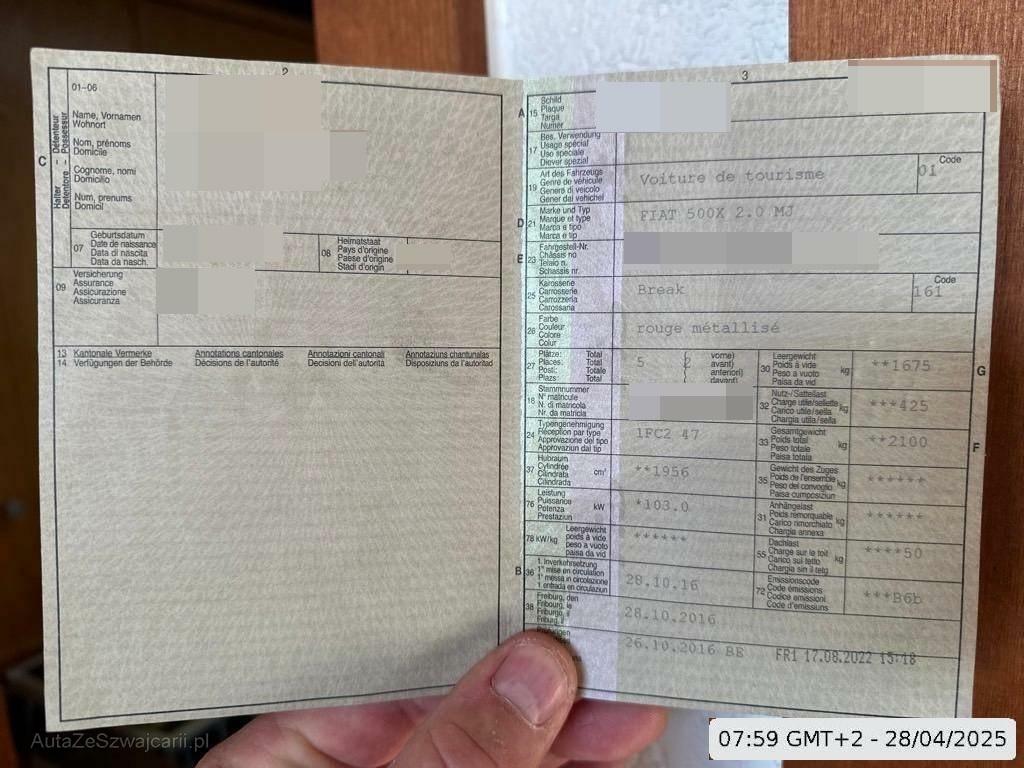 2
01-06
Halter - Détenteur
Detentore - Possessur
C
Name, Vornamen
Wohnort
Nom, prénoms
Domicile
Cognome, nomi
Domicilio
Num, prenums
Domicil
07
Geburtsdatum
Date de naissance
Data di nascita
Data da nasch.
08
Heimatstaat
Pays d'origine
Paese d'origine
Stadi d'origin
09
Versicherung
Assurance
Assicurazione
Assicuranza
13 Kantonale Vermerke Annotations cantonales Annotazioni cantonali Annotaziuns chantunalas
14 Verfügungen der Behörde Décisions de l'autorité Decisioni dell'autorità Disposiziuns da l'autoritad
3
A 15
Schild
Plaque
Targa
Numer
17
Bes. Verwendung
Usage spécial
Uso speciale
Diever spezial
19
Art des Fahrzeugs
Genre de véhicule
Genere di veicolo
Gener dal vehichel
Voiture de tourisme
Code
01
D 21
Marke und Typ
Marque et type
Marca e tipo
Marca e tip
FIAT 500X 2.0 MJ
E 23
Fahrgestell-Nr.
Châssis no
Telaio n.
Schassis nr.
25
Karosserie
Carrosserie
Carrozzeria
Carossaria
Break
Code
161
26
Farbe
Couleur
Colore
Colur
rouge métallisé
27
Plätze: Total
Places: Total
Posti: Totale
Plazs: Total
5 2
vorne)
avant)
anteriori)
davant)
30
Leergewicht
Poids à vide
Peso a vuoto
Paisa da vid
kg
**1675
G
18
Stammnummer
N° matricule
N. di matricola
Nr. da matricla
32
Nutz-/Sattellast
Charge utile/sellette
Carico utile/sella
Chargia utila/sella
kg
***425
24
Typengenehmigung
Réception par type
Approvazione del tipo
Approvaziun dal tip
1FC2 47
33
Gesamtgewicht
Poids total
Peso totale
Paisa totala
kg
**2100
F
37
Hubraum
Cylindrée
Cilindrata
Cilindrada
cm³
**1956
35
Gewicht des Zuges
Poids de l'ensemble
Peso del convoglio
Paisa cumposiziun
kg
******
76
Leistung
Puissance
Potenza
Prestaziun
kW
*103.0
31
Anhängelast
Poids remorquable
Carico rimorchiato
Chargia annexa
kg
******
78 kW/kg
Leergewicht
poids à vide
peso a vuoto
paisa da vid
******
55
Dachlast
Charge sur le toit
Carico sul tetto
Chargia sin il tetg
kg
****50
B 36
1. Inverkehrsetzung
1re mise en circulation
1a messa in circolazione
1. entrada en circulaziun
28.10.16
72
Emissionscode
Code émissions
Codice emissioni
Code d'emissiuns
***B6b
38
Freiburg, den
Fribourg, le
Friburgo, il
Friburg, il
28.10.2016
26.10.2016 BE
FR1 17.08.2022 15:18
AutaZeSzwajcarii.pl
07:59 GMT+2 - 28/04/2025